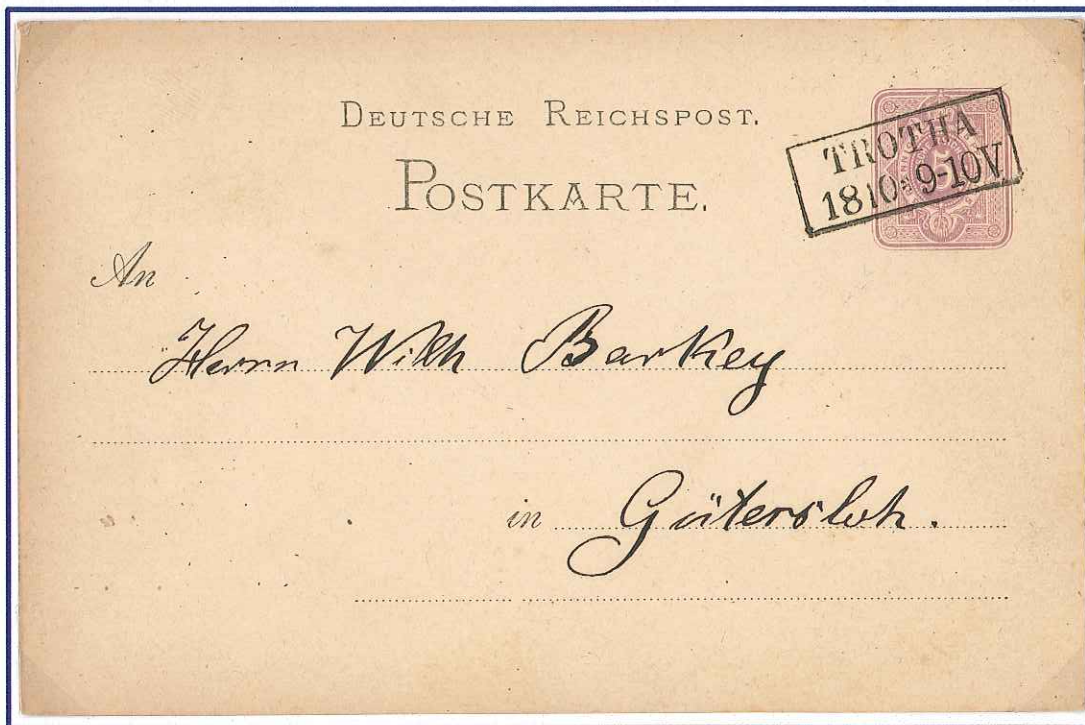 DEUTSCHE REICHSPOST.
POSTKARTE.
TROTHA
18 10 9-10V
An
Herrn Wilh Barkey
in Gütersloh.